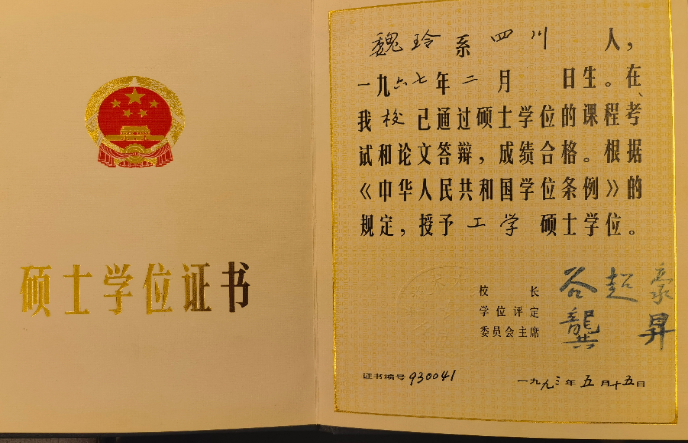 硕士学位证书
魏玲系四川 人，
一九六七年二月 日生。在
我校已通过硕士学位的课程考
试和论文答辩，成绩合格。根据
《中华人民共和国学位条例》的
规定，授予工学 硕士学位。
校 长 谷超豪
学位评定
委员会主席 龚昇
证书编号 930041
一九九三年五月十五日